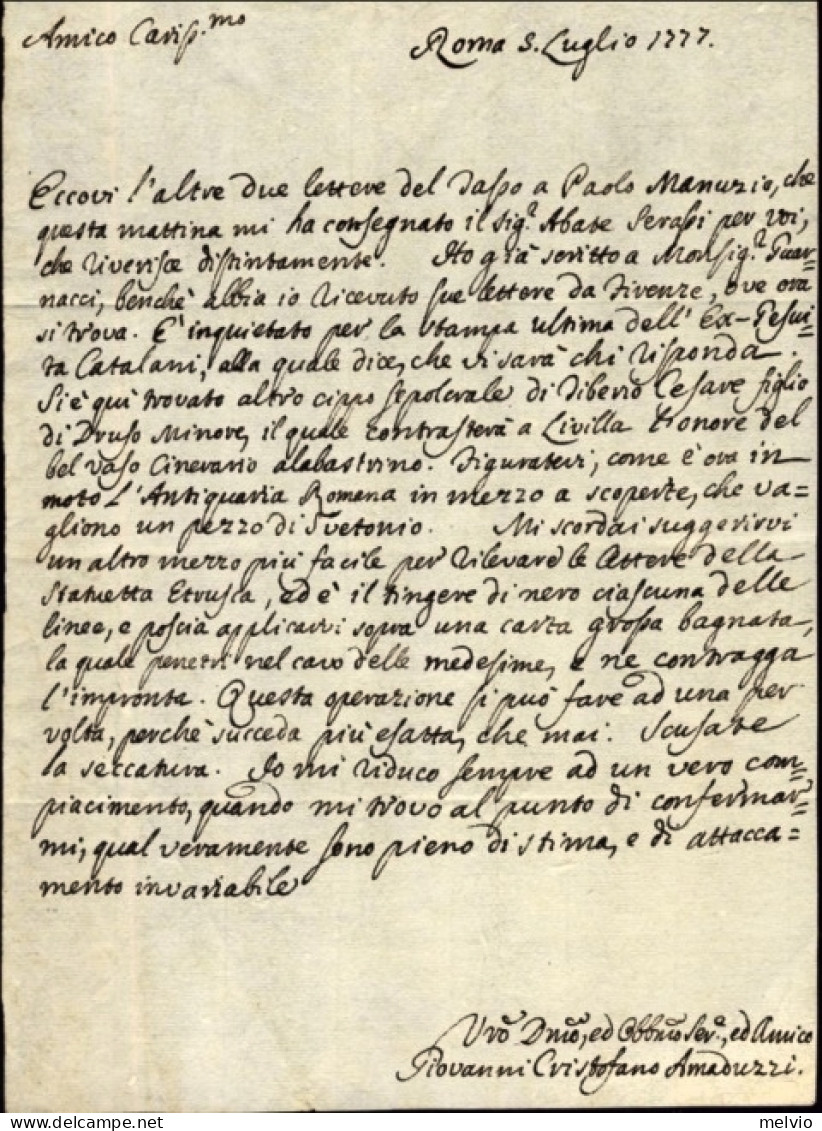 Amico Cariss.mo
Roma 5. Luglio 1777.
Eccovi l'altre due lettere del Tasso a Paolo Manuzio, che
questa mattina mi ha consegnato il Sig.r Abate Serassi per voi,
che riverisce distintamente. Ho già scritto a Monsig.r Guar=
nacci, benchè abbia io ricevuto sue lettere da Firenze, ove ora
si trova. E' inquietato per la stampa ultima dell' Ex-Gesui=
ta Catalani, alla quale dice, che vi sarà chi risponda.
Si è quì trovato altro cippo sepolcrale di Tiberio Cesare figlio
di Druso Minore, il quale contrasterà a Livilla l'onore del
bel vaso Cinerario alabastrino. Figuratevi, come è ora in
moto l'Antiquaria Romana in mezzo a scoperte, che va=
gliono un pezzo di Svetonio. Mi scordai suggerirvi
un altro mezzo più facile per rilevare le lettere della
Statuetta Etrusca, ed è il tingere di nero ciascuna delle
linee, e poscia applicarvi sopra una carta grossa bagnata,
la quale penetri nel cavo delle medesime, e ne contragga
l'impronta. Questa operazione si può fare ad una per
volta, perchè succeda più esatta, che mai. Scusate
la seccatura. Io mi riduco sempre ad un vero com=
piacimento, quando mi trovo al punto di confermar=
mi, qual veramente sono pieno di stima, e di attacca=
mento invariabile
Vrõ Dmõ, ed Obbmõ Ser.e, ed Amico
Giovanni Cristofano Amaduzzi.
delcampe.net
melvio